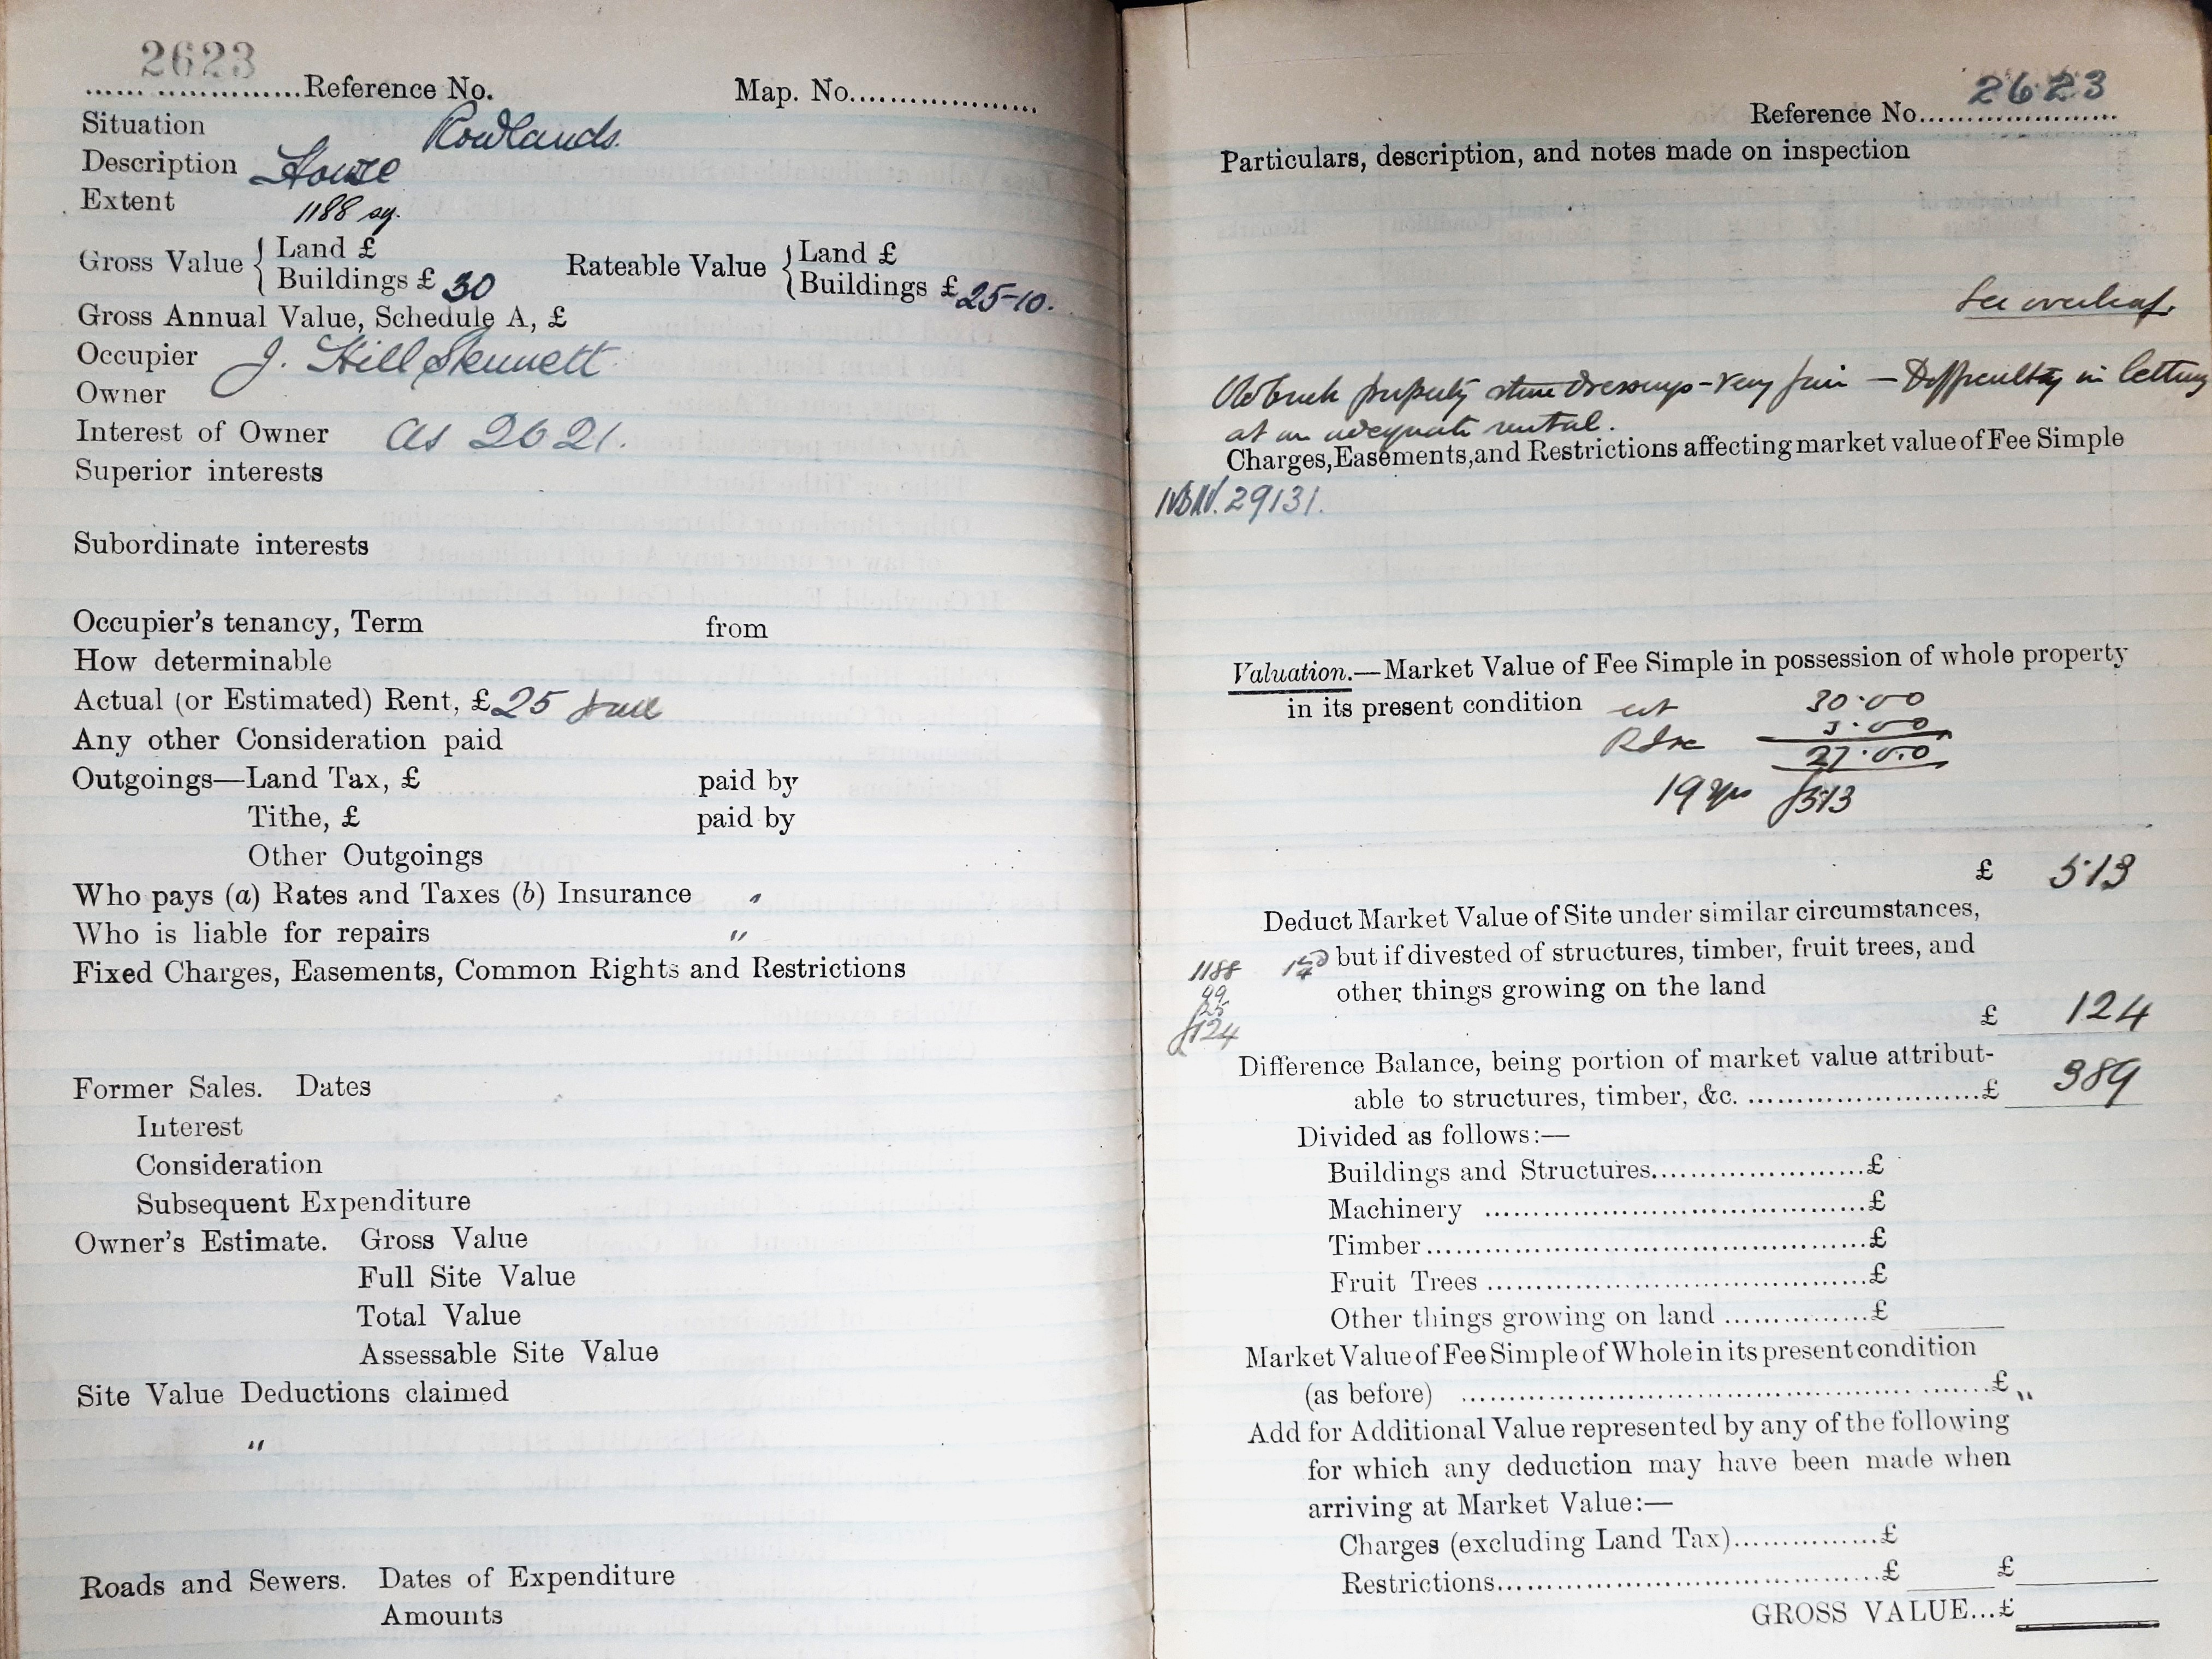 2623
...... ..............Reference No. Map. No....................
Situation Rowlands.
Description House
Extent 1188 sy.
Gross Value { Land £
Buildings £ 30
Rateable Value { Land £
Buildings £ 25-10.
Gross Annual Value, Schedule A, £
Occupier J. Hill
Owner
Interest of Owner as 2621.
Superior interests
Subordinate interests
Occupier's tenancy, Term from
How determinable
Actual (or Estimated) Rent, £ 25
Any other Consideration paid
Outgoings—Land Tax, £ paid by
Tithe, £ paid by
Other Outgoings
Who pays (a) Rates and Taxes (b) Insurance "
Who is liable for repairs "
Fixed Charges, Easements, Common Rights and Restrictions
Former Sales. Dates
Interest
Consideration
Subsequent Expenditure
Owner's Estimate. Gross Value
Full Site Value
Total Value
Assessable Site Value
Site Value Deductions claimed
"
Roads and Sewers. Dates of Expenditure
Amounts
Reference No. 2623
Particulars, description, and notes made on inspection
See overleaf
Old brick property stone dressings - very fair — Difficulty in letting
at an adequate rental.
Charges, Easements, and Restrictions affecting market value of Fee Simple
29131.
Valuation.—Market Value of Fee Simple in possession of whole property
in its present condition est 30.00
3.00
27.0.0
19 yrs £513
£ 513
Deduct Market Value of Site under similar circumstances,
1188 but if divested of structures, timber, fruit trees, and
99 other things growing on the land
25
£124
£ 124
Difference Balance, being portion of market value attribut-
able to structures, timber, &c. ........................£ 389
Divided as follows:—
Buildings and Structures.......................£
Machinery .........................................£
Timber...............................................£
Fruit Trees .........................................£
Other things growing on land ................£
Market Value of Fee Simple of Whole in its present condition
(as before) ................................................ .......£ "
Add for Additional Value represented by any of the following
for which any deduction may have been made when
arriving at Market Value:—
Charges (excluding Land Tax)................£
Restrictions........................................£ £
GROSS VALUE...£